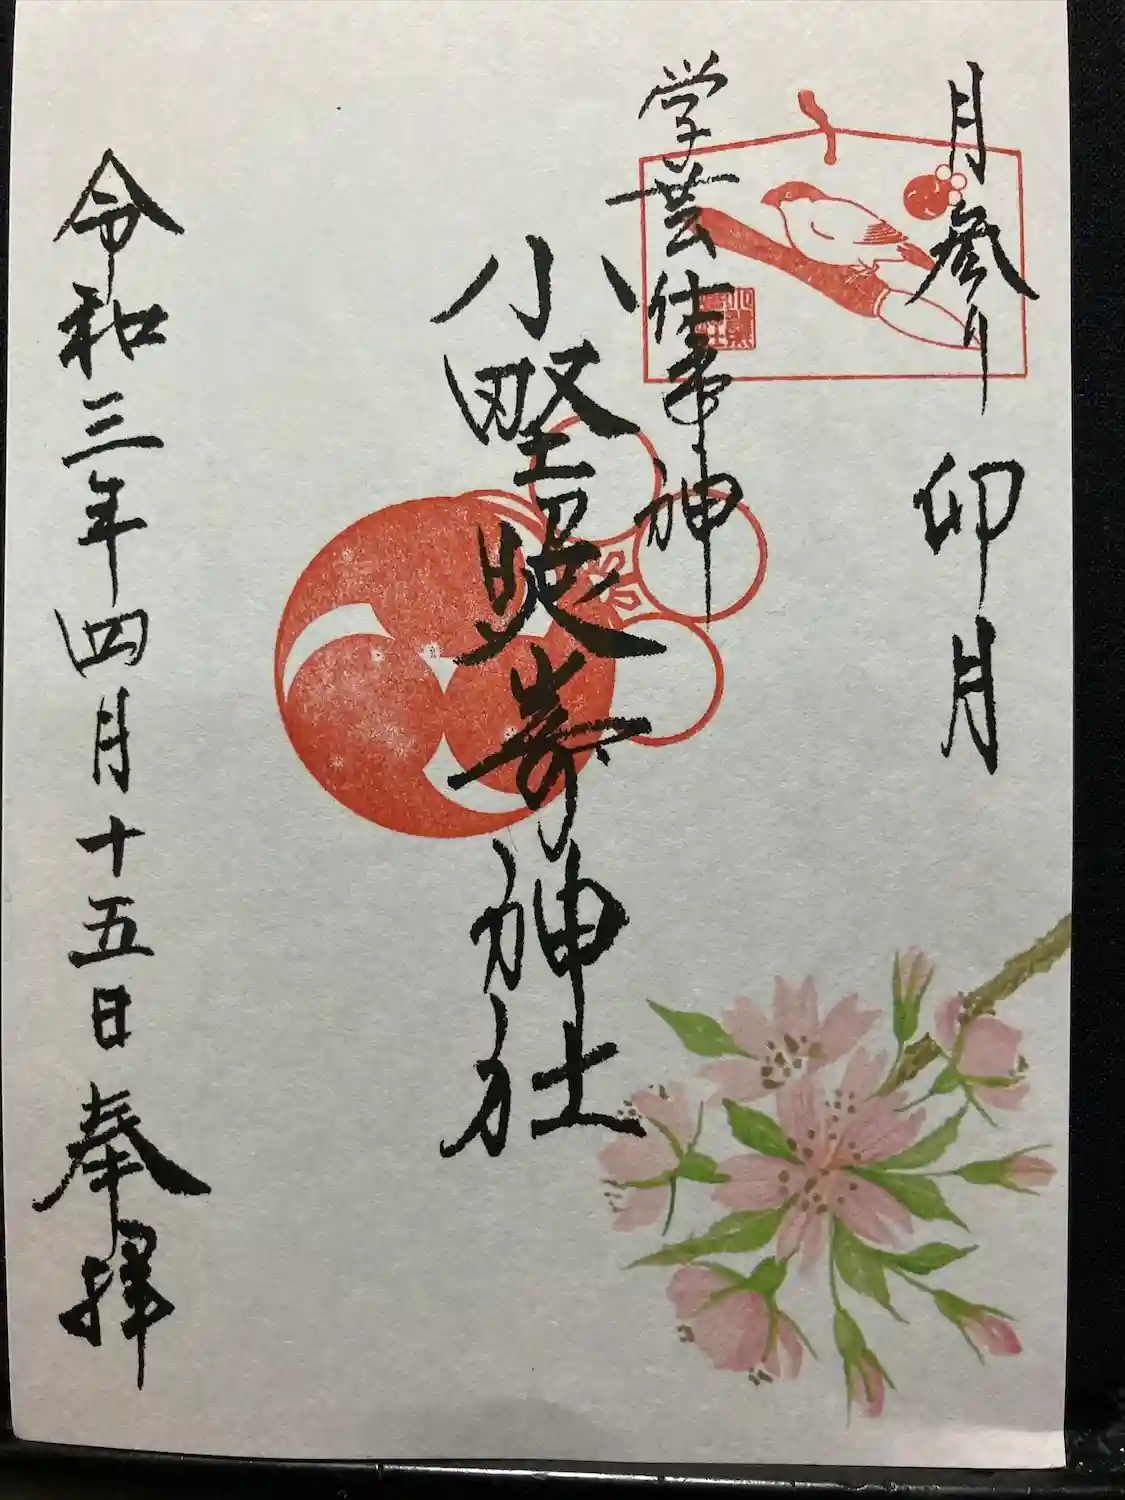 月参り 卯月
学芸仕事神
小野照嵜神社
令和三年四月十五日 奉拝